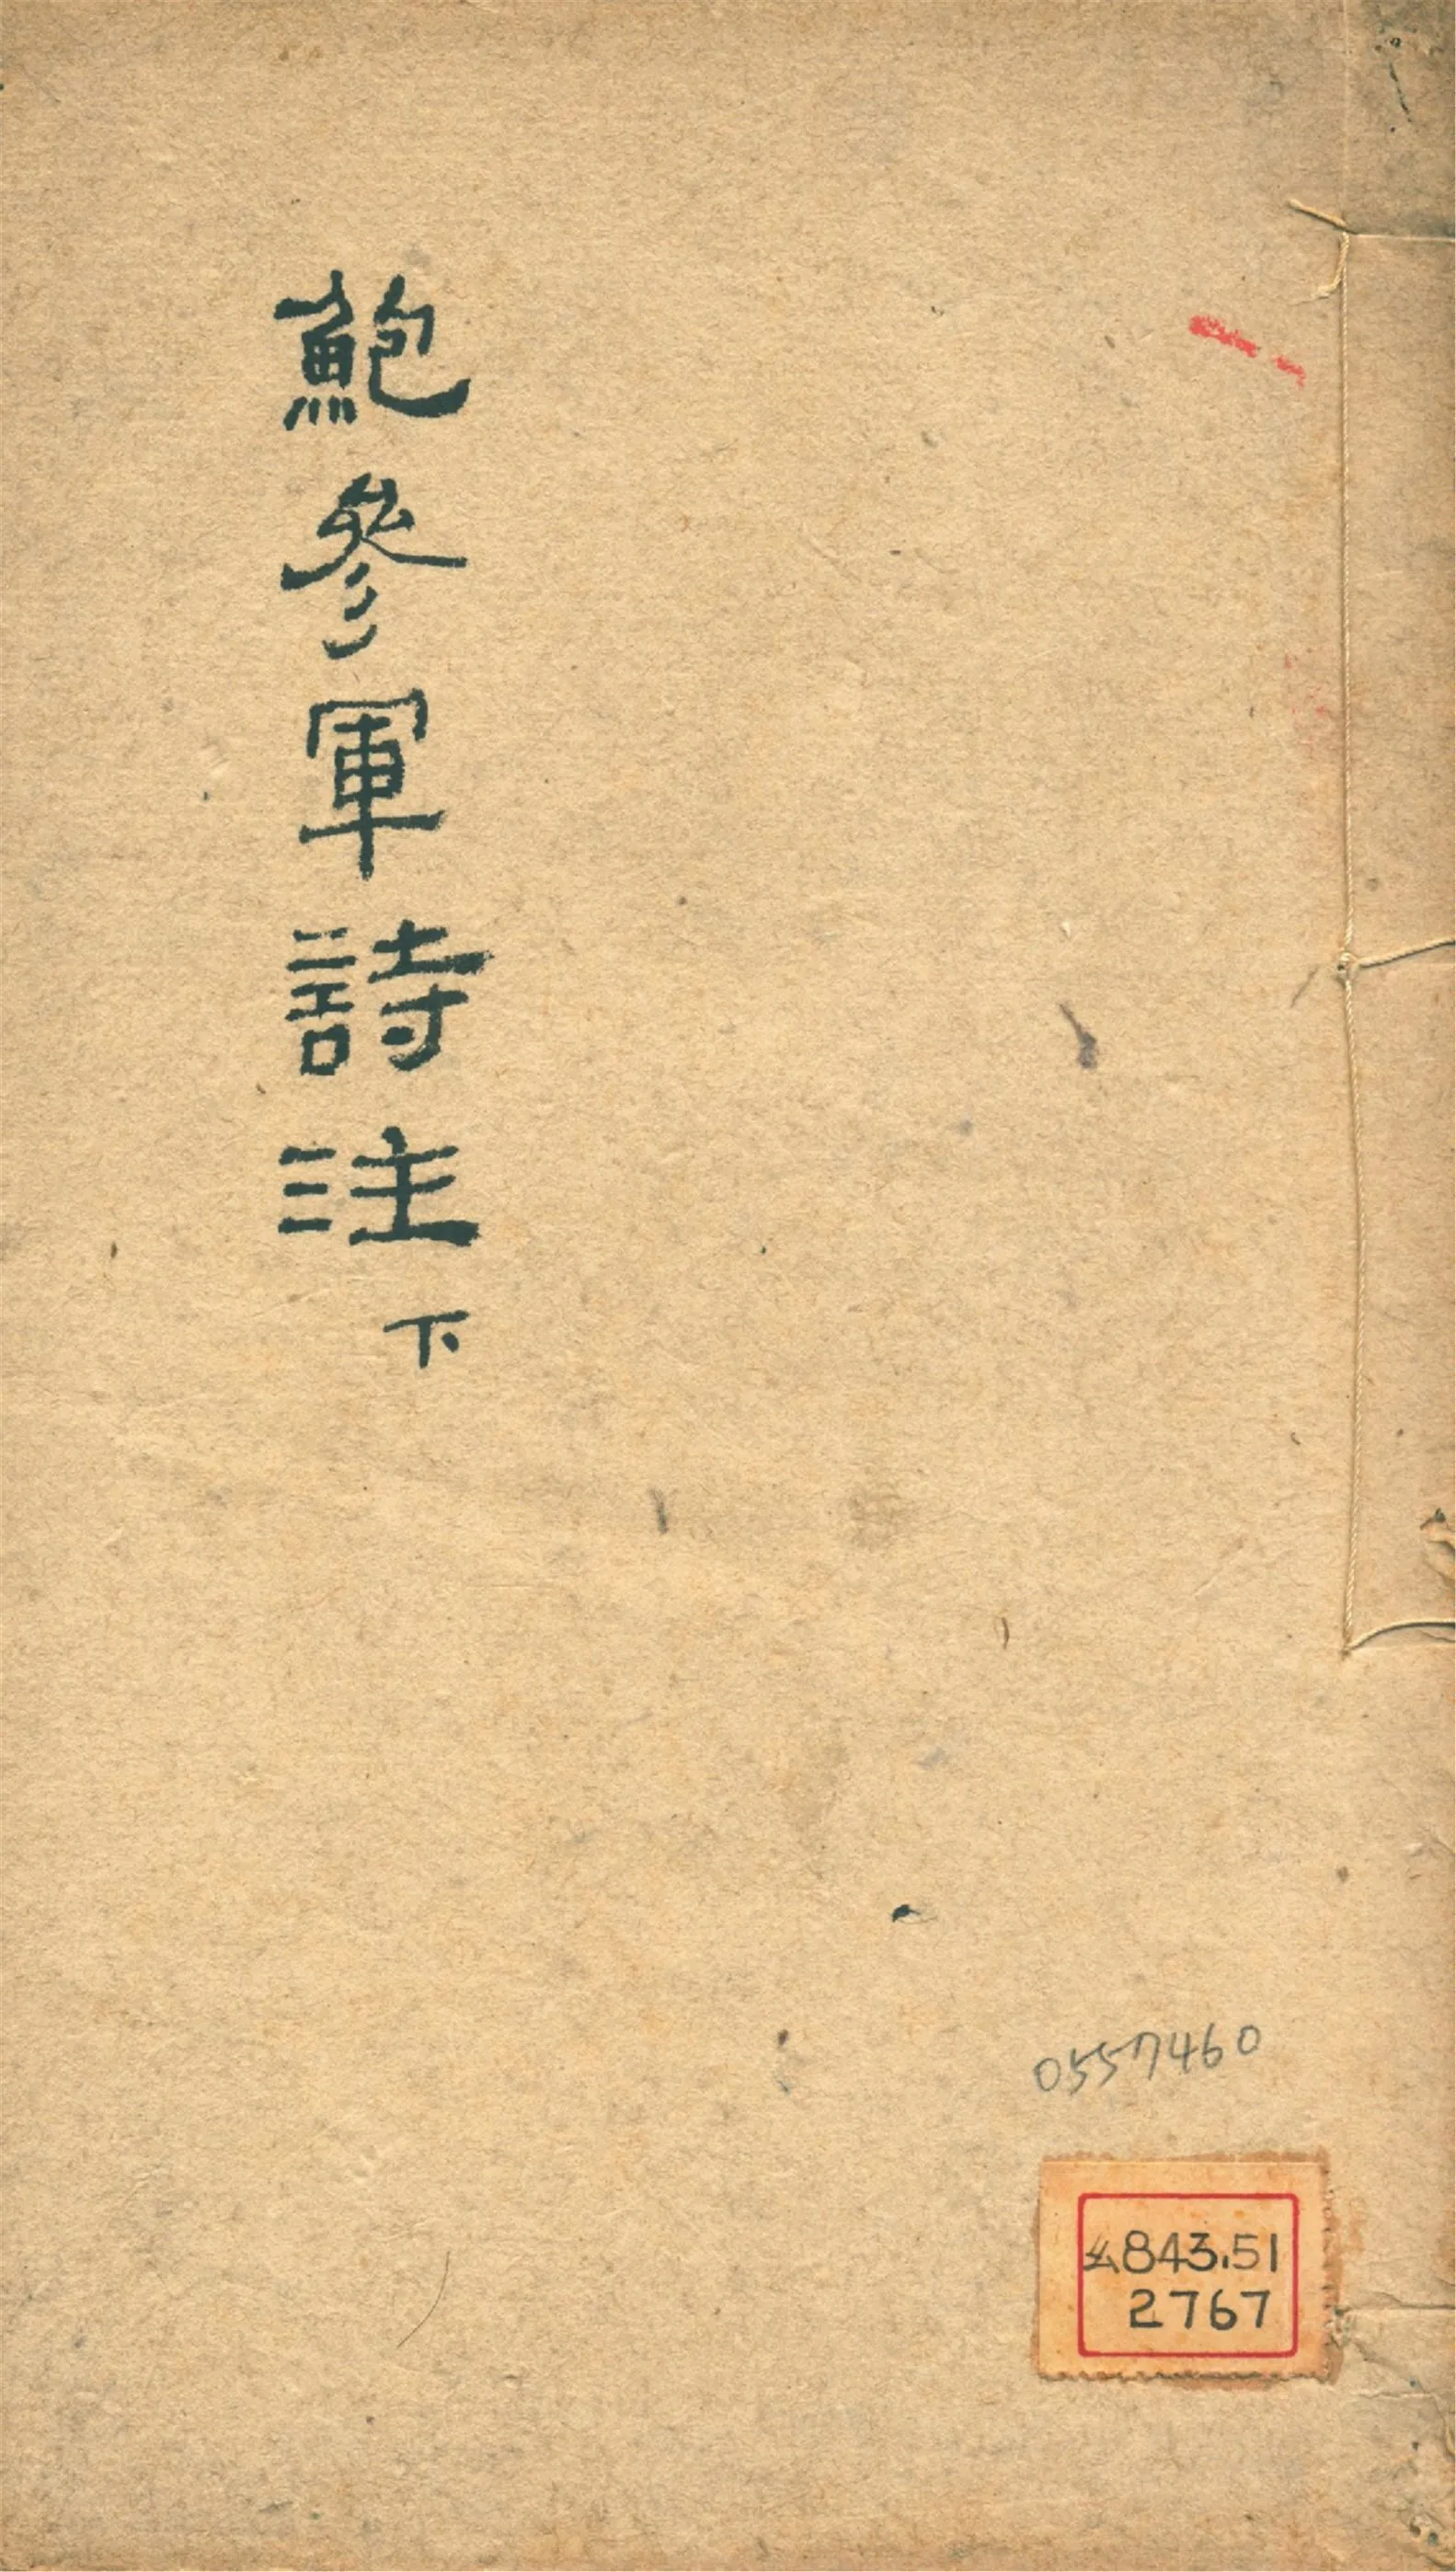 鮑參軍詩注下
0557460
843.51
2767